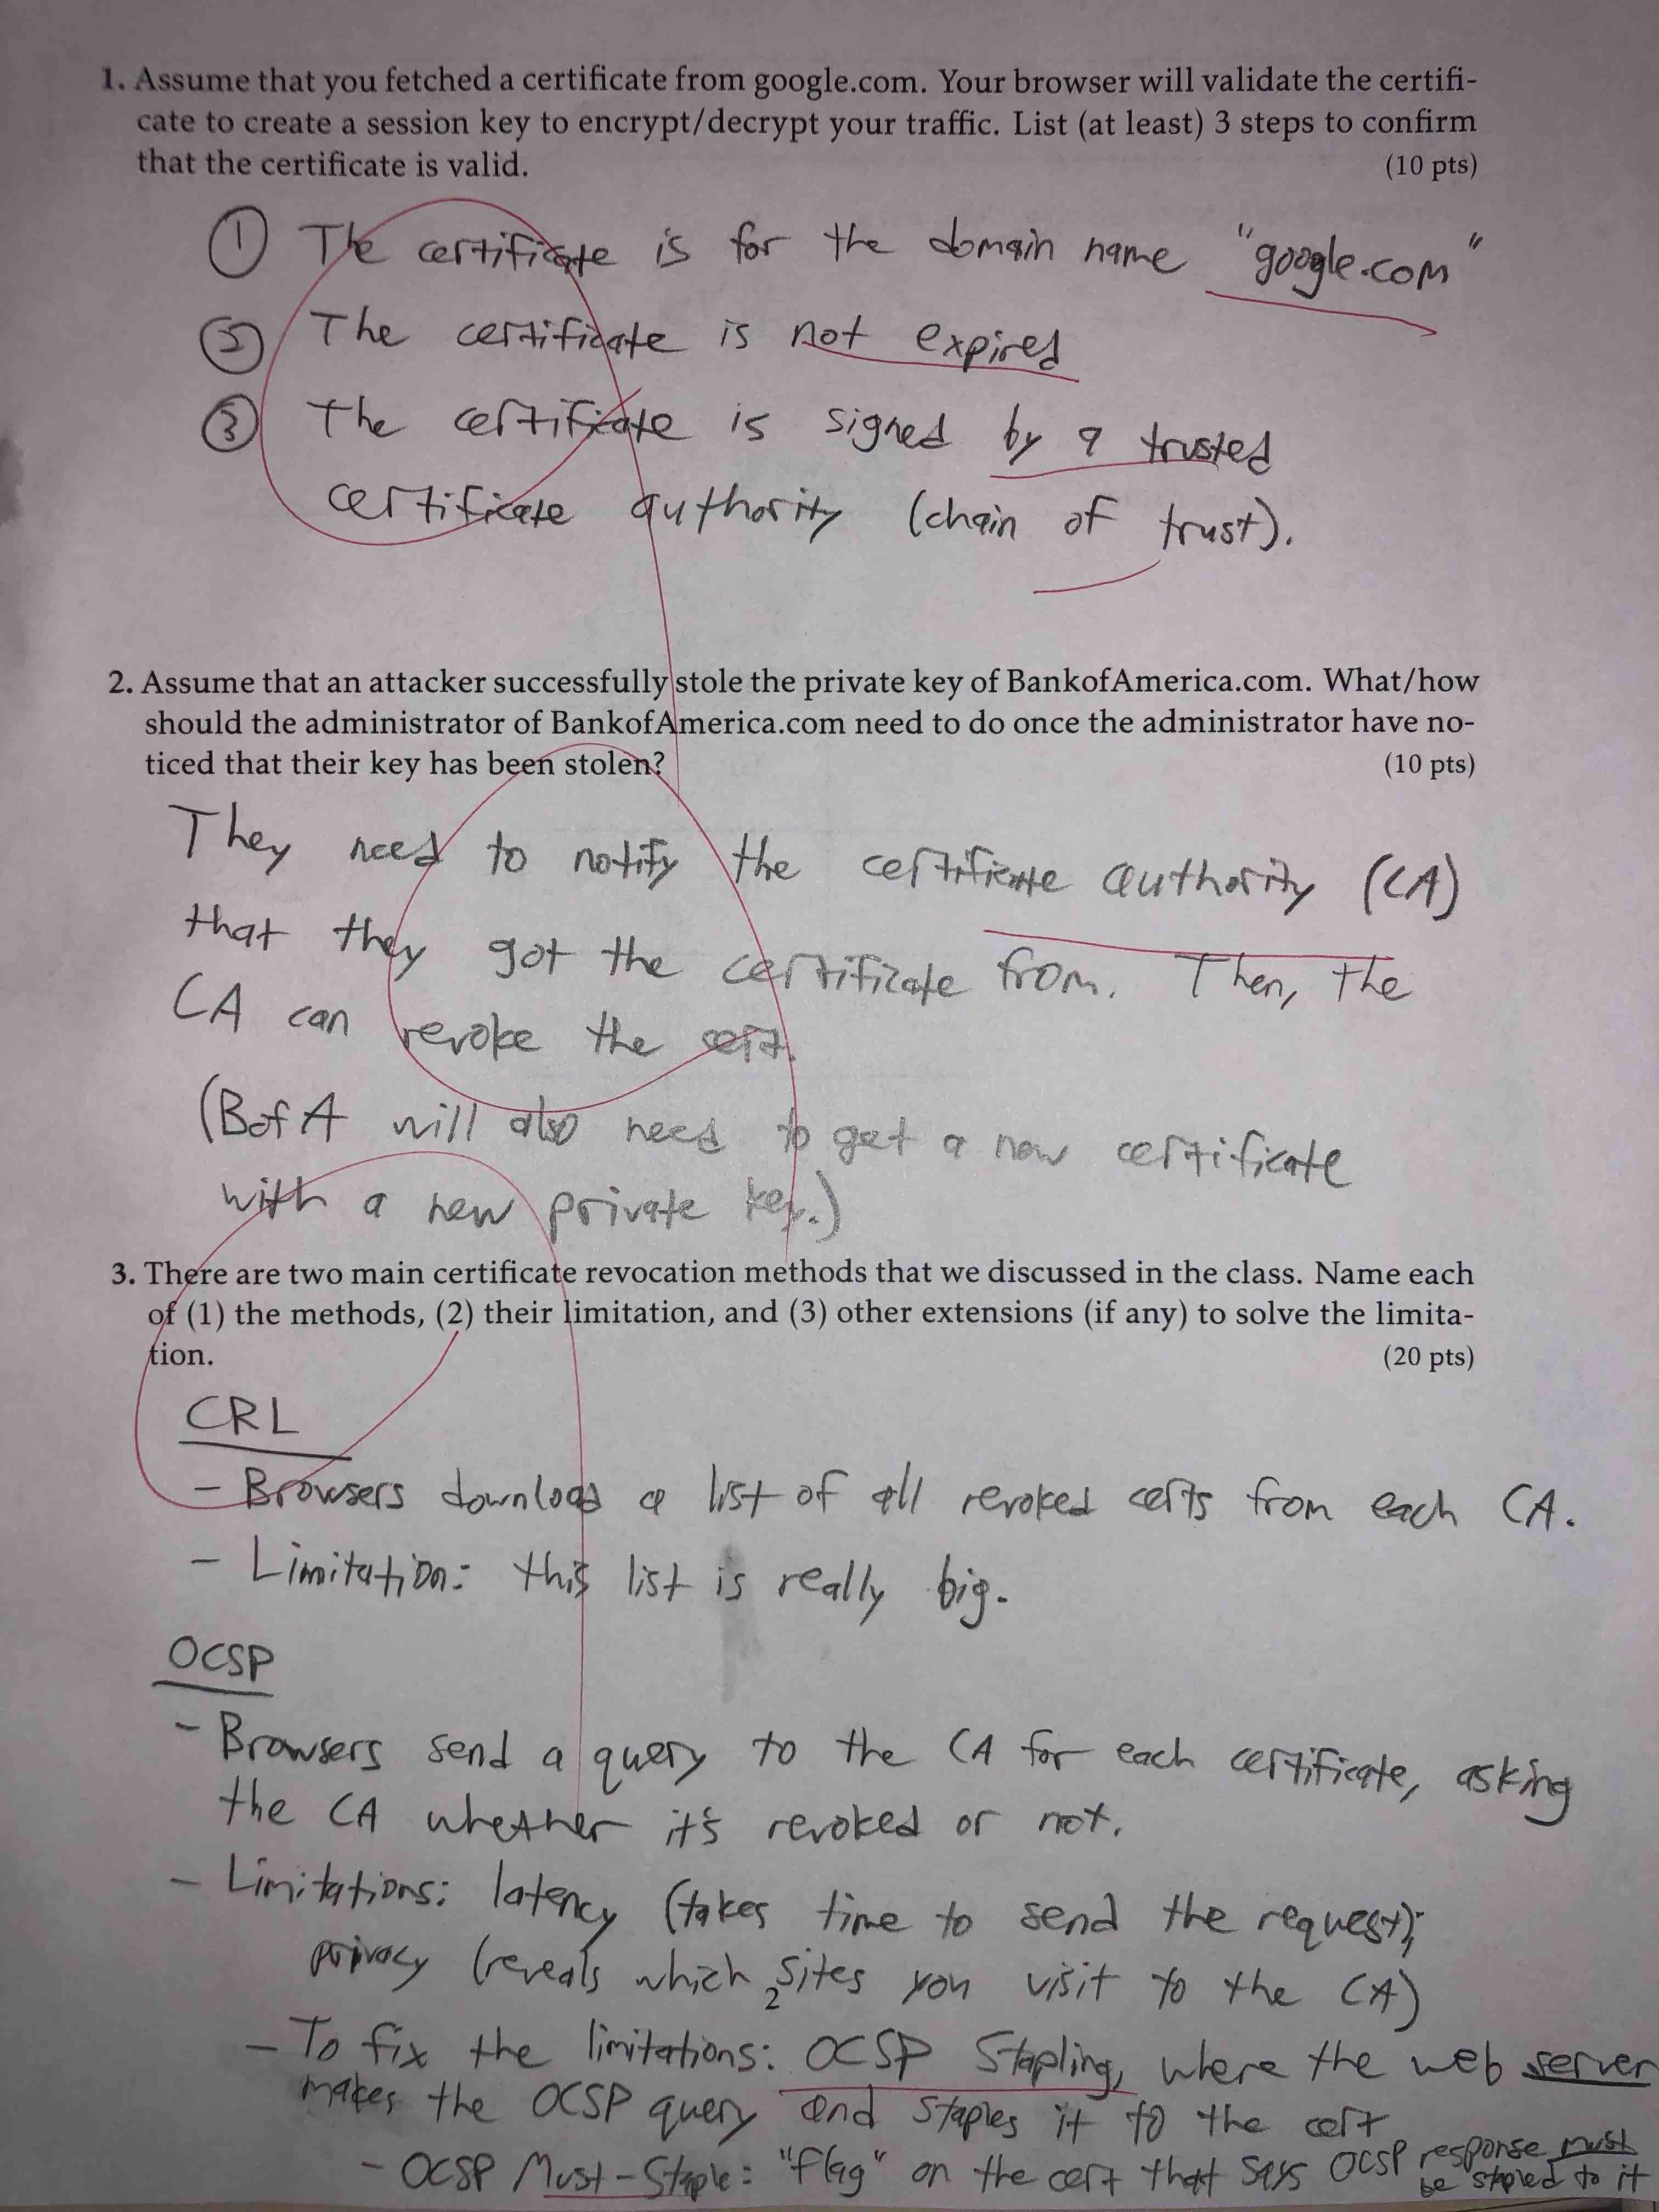 1. Assume that you fetched a certificate from google.com. Your browser will validate the certifi-
cate to create a session key to encrypt/decrypt your traffic. List (at least) 3 steps to confirm
that the certificate is valid. (10 pts)
① The certificate is for the domain name "google.com"
② The certificate is not expired
③ The certificate is signed by a trusted
certificate authority (chain of trust).
2. Assume that an attacker successfully stole the private key of BankofAmerica.com. What/how
should the administrator of BankofAmerica.com need to do once the administrator have no-
ticed that their key has been stolen? (10 pts)
They need to notify the certificate authority (CA)
that they got the certificate from. Then, the
CA can revoke the cert.
(BofA will also need to get a new certificate
with a new private key.)
3. There are two main certificate revocation methods that we discussed in the class. Name each
of (1) the methods, (2) their limitation, and (3) other extensions (if any) to solve the limita-
tion. (20 pts)
CRL
- Browsers download a list of all revoked certs from each CA.
- Limitation: this list is really big.
OCSP
- Browsers send a query to the CA for each certificate, asking
the CA whether it's revoked or not.
- Limitations: latency (takes time to send the request);
privacy (reveals which sites you visit to the CA)
2
- To fix the limitations: OCSP Stapling, where the web server
makes the OCSP query and staples it to the cert
- OCSP Must-Staple: "flag" on the cert that says OCSP response must
be stapled to it